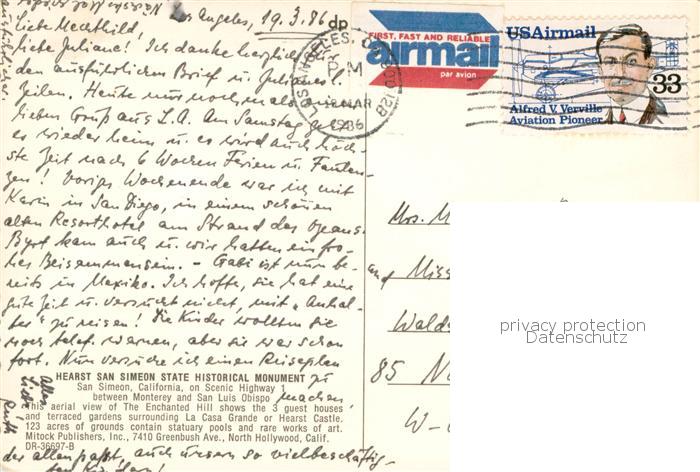 Los Angeles, 19.3.86
Liebe Mechthild,
liebe Juliane! Ich danke herzlich
den ausführlichen Brief u. Julianes l.
Zeilen. Heute nur nochmals einen
lieben Gruß aus L.A. Am Samstag geht
es wieder heim u. es wird auch höch-
ste Zeit nach 6 Wochen Ferien u. Faulen-
zen! Vorige Wochenende war ich mit
Karin in San Diego, in einem schönen
alten Resorthotel am Strand des Ozeans.
kam auch u. wir hatten ein fro-
hes Beisammensein. - Gabi ist nun be-
reits in Mexiko. Ich hoffe, sie hat eine
gute Zeit u. versucht nicht, mit "Anhal-
ter" zu reisen! Die Kinder wollten sie
noch telef. warnen, aber sie war schon
fort. Nun versuche ich einen Reiseplan
zu
HEARST SAN SIMEON STATE HISTORICAL MONUMENT
San Simeon, California, on Scenic Highway 1
between Monterey and San Luis Obispo
machen
This aerial view of The Enchanted Hill shows the 3 guest houses
and terraced gardens surrounding La Casa Grande or Hearst Castle.
123 acres of grounds contain statuary pools and rare works of art.
Mitock Publishers, Inc., 7410 Greenbush Ave., North Hollywood, Calif.
DR-36697-B
der allen paßt, auch unsern so vielbeschäftig-
ten Kindern!
Alles
Liebe
Ruth
dp
FIRST, FAST AND RELIABLE
airmail
par avion
LOS ANGELES, CA
MAR
1986
USAirmail
33
Alfred V. Verville
Aviation Pioneer
Mrs. M
and Miss
Wald
85 N
W-
privacy protection
Datenschutz